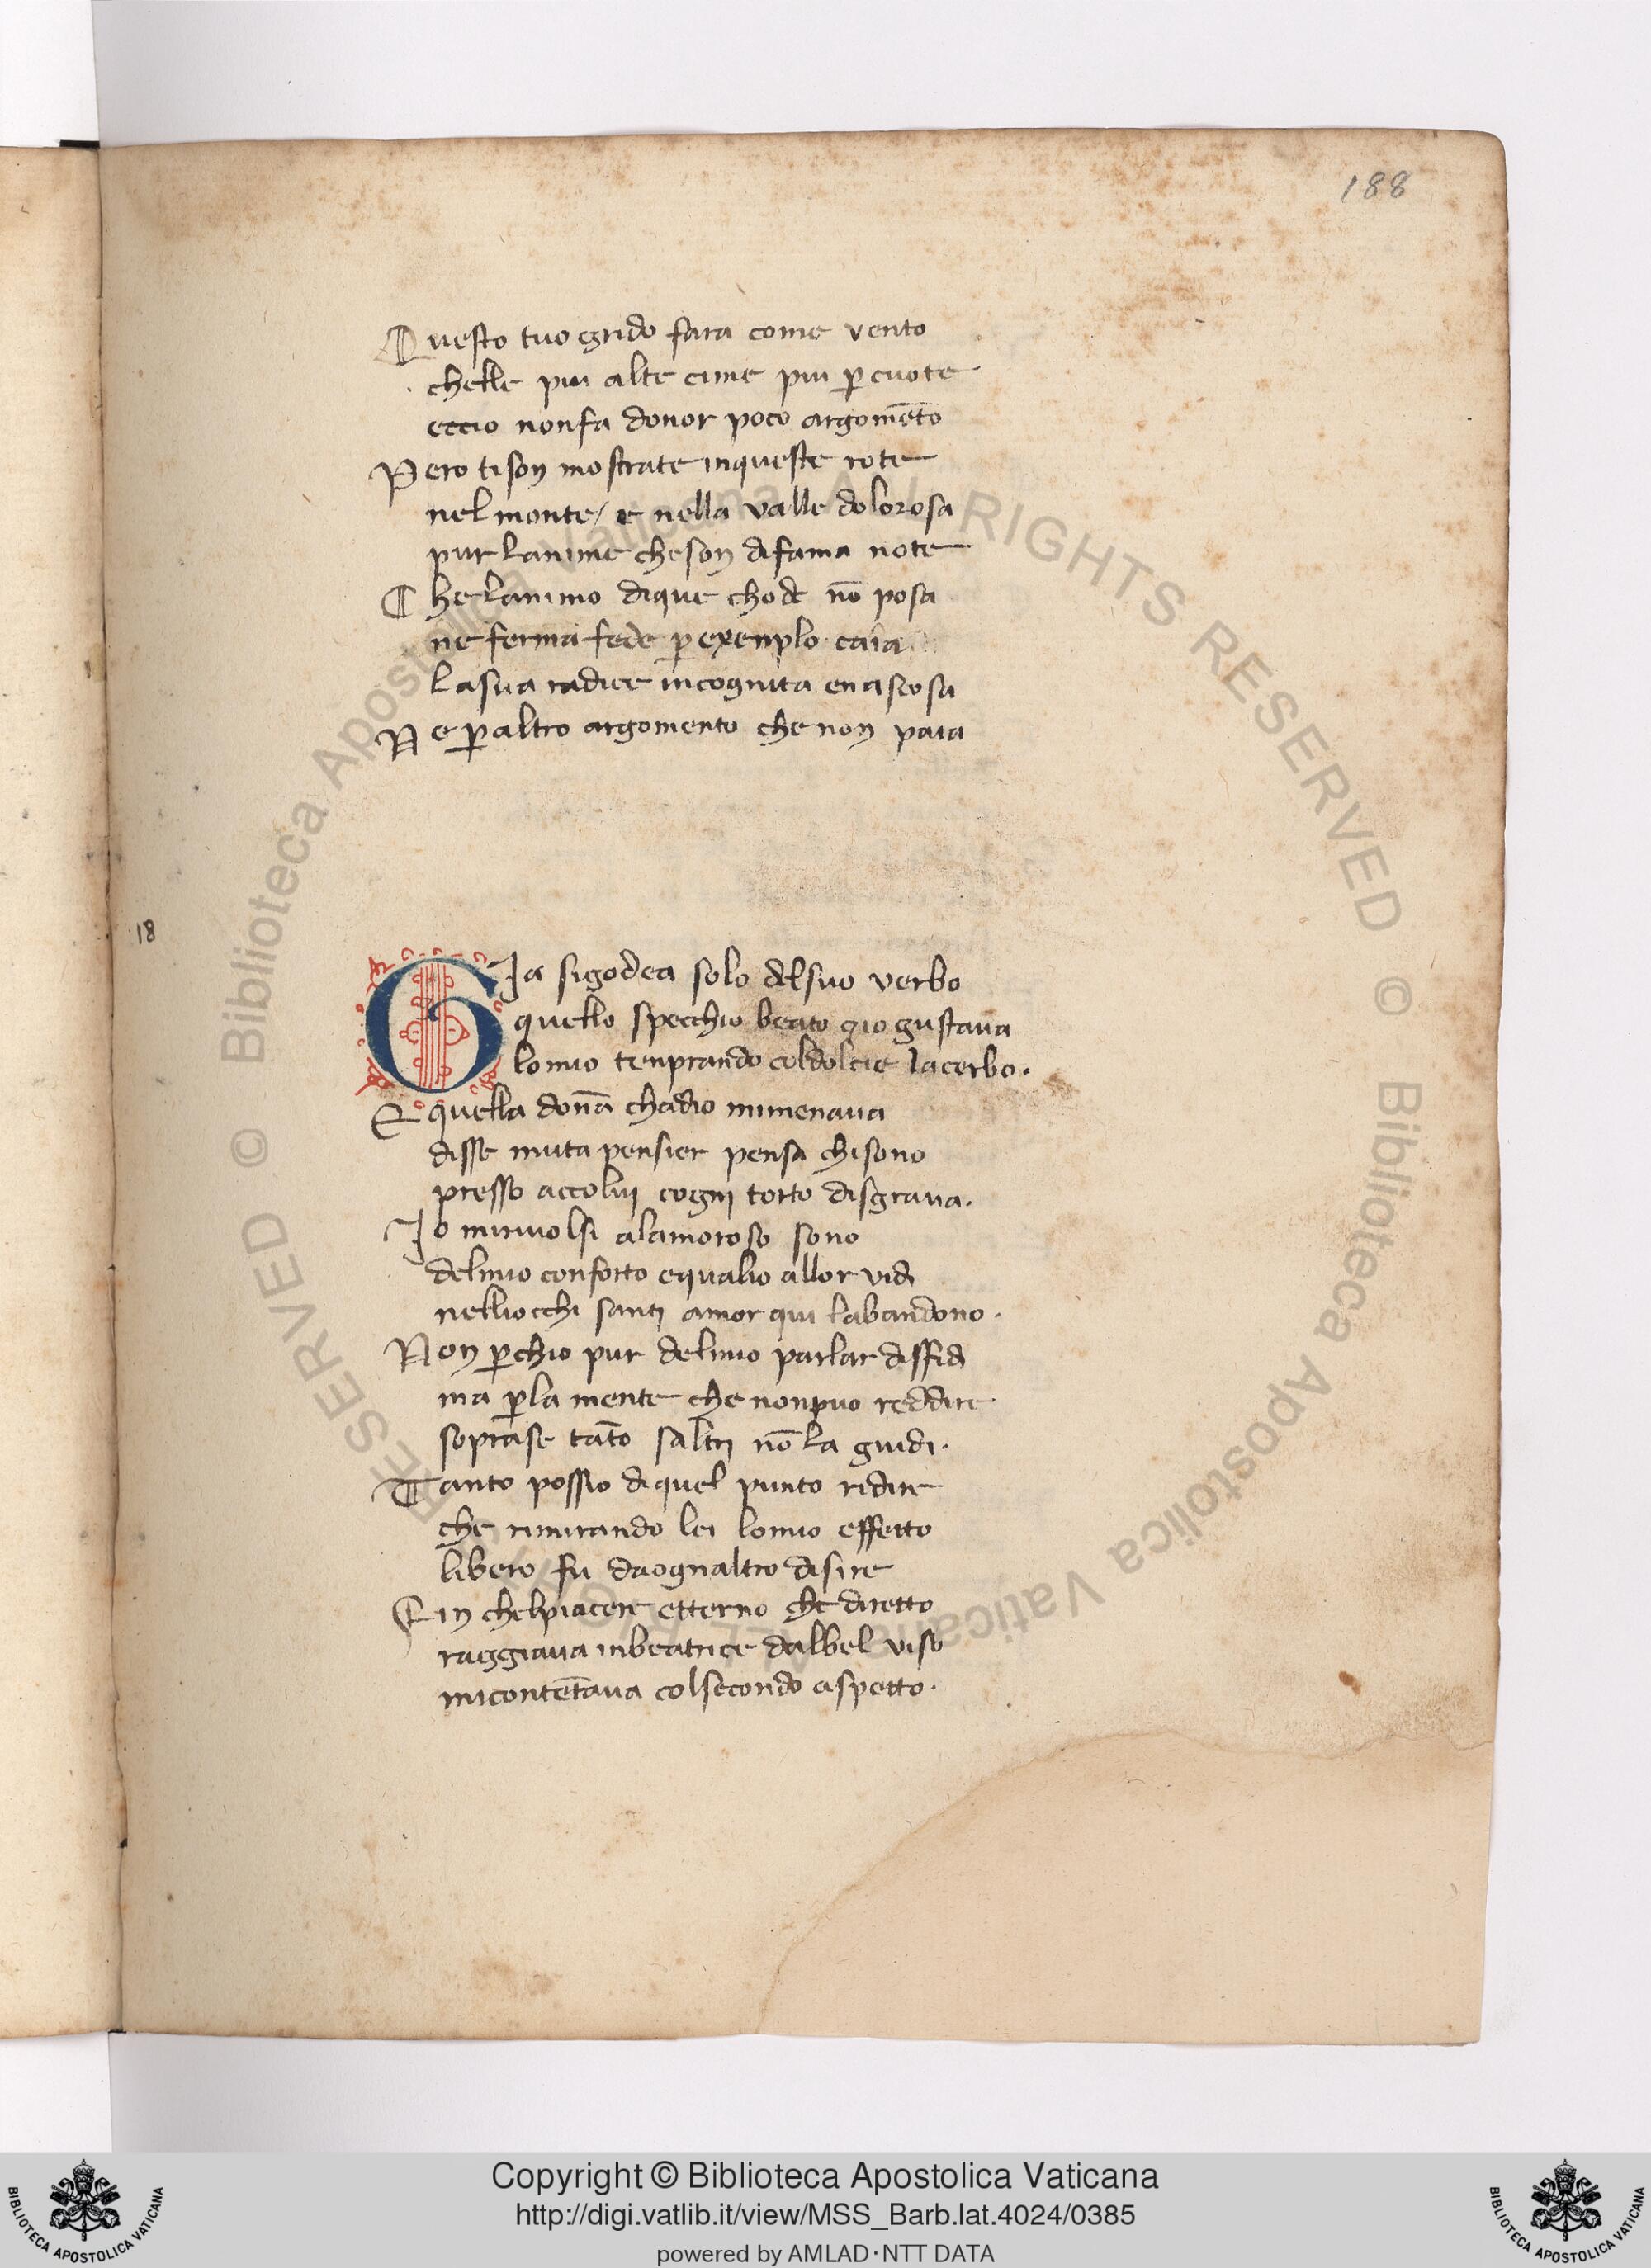 188
Questo tuo grido fara come vento
chelle piu alte cime piu p̲cuote
eccio nonfa donor poco argomēto
Pero tison mostrate inqueste rote
nel monte / e nella valle dolorosa
pur lanime cheson difama note
Che lanimo dique chode nō posa
ne ferma fede p̲ exenplo caia
la sua radice incognita enascosa
Ne p̲altro argomento che non paia
18
Gia sigodea solo delsuo verbo
quello specchio beato &io gustaua
lomio tenprando coldolcie lacerbo.
E quella donā chadio mimenaua
disse muta pensier pensa chisono
presso accolui cogni torto disgraua.
Io miriuolsi alamoroso sono
delmio conforto equalio allor vidi
nelliocchi santi amor qui labandono.
Non p̲chio pur delmio parlar diffidi
ma p̲la mente che nonpuo reddire
soprase tāto saltri nō la guidi.
Tanto possio diquel punto ridire
che rimirando lei lomio effetto
libero fu daognaltro disire
Ein chelpiacere etterno che diretto
raggiaua inbeatrice dalbel viso
micontētaua colsecondo aspetto.
© Biblioteca Apostolica Vaticana ALL RIGHTS RESERVED © Biblioteca Apostolica Vaticana ALL RIGHTS RESERVED
Copyright © Biblioteca Apostolica Vaticana
http://digi.vatlib.it/view/MSS_Barb.lat.4024/0385
powered by AMLAD·NTT DATA
BIBLIOTECA APOSTOLICA VATICANA
BIBLIOTECA APOSTOLICA VATICANA